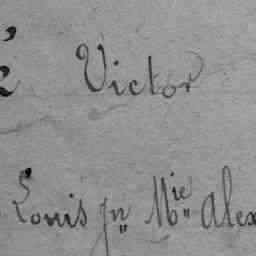 Victor
Louis Jn Mie Alex